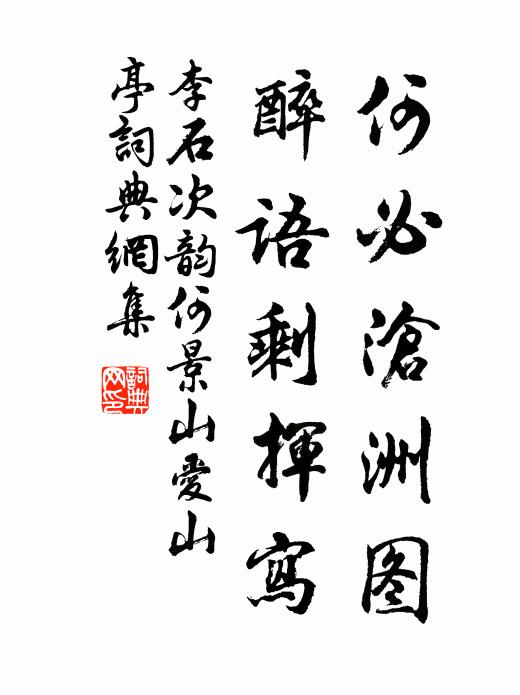 何必滄洲图
醉語剩揮寫
李石次韵何景山愛山
亭詞典網集
詞典
网印